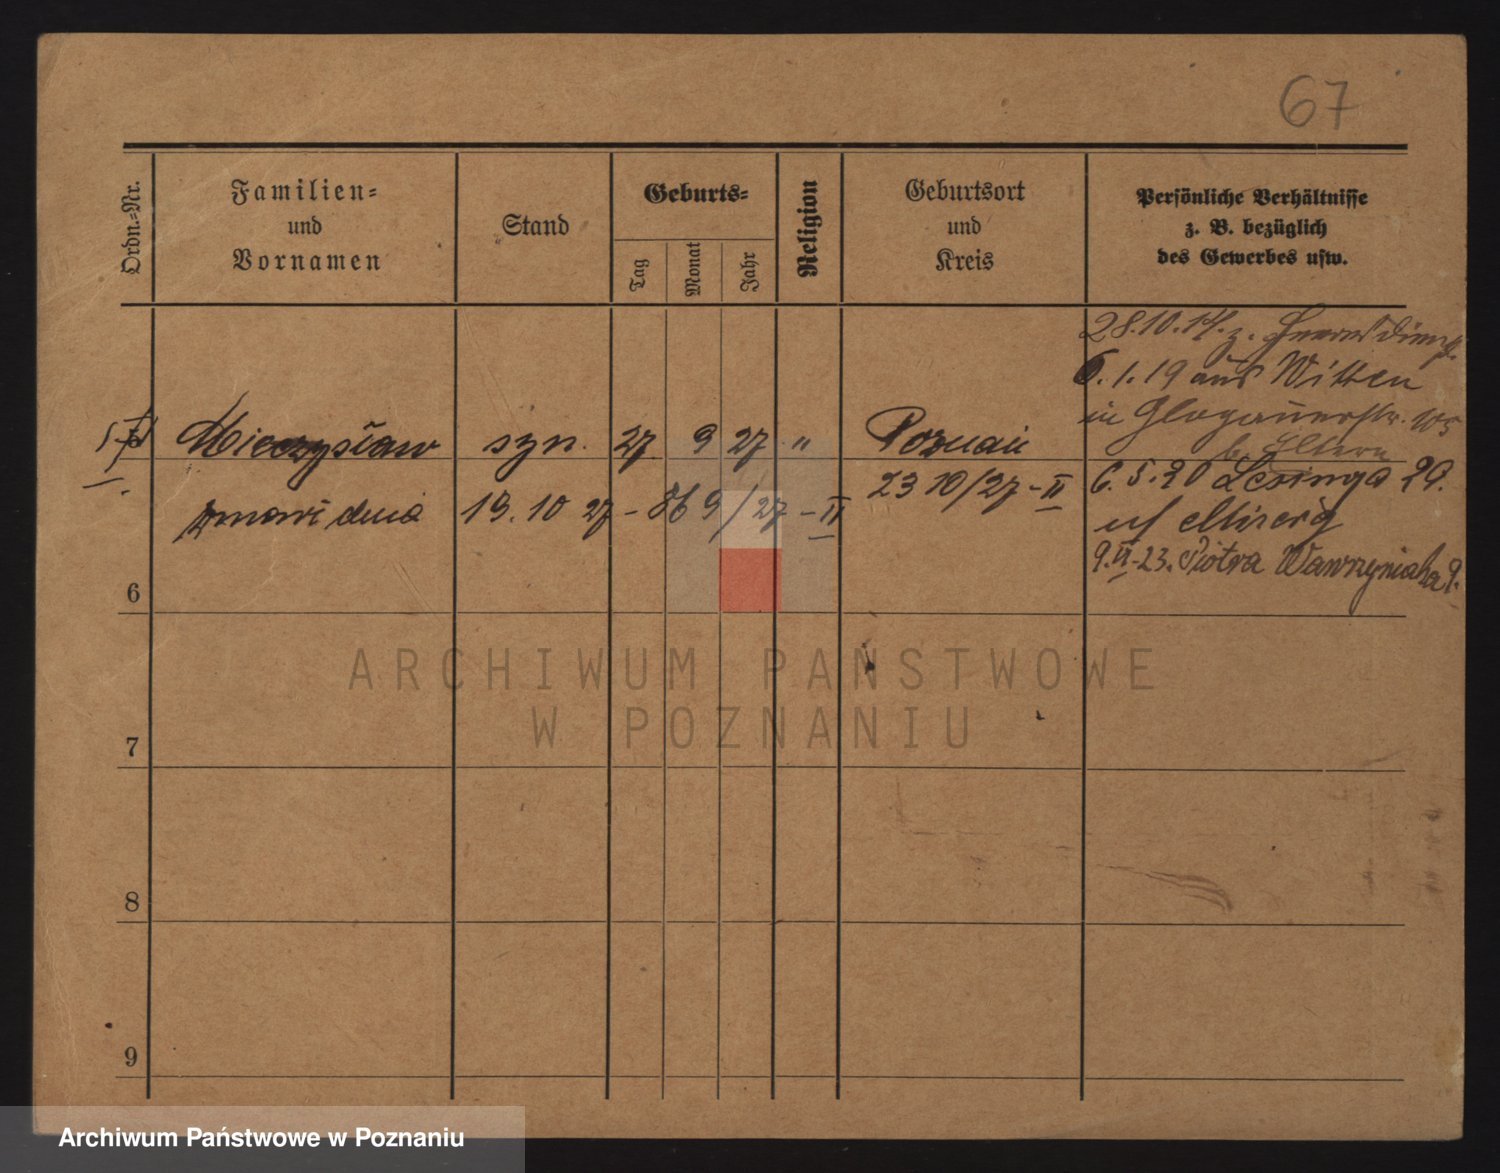 67
Ordn.-Nr.
Familien-
und
Vornamen
Stand
Geburts-
Tag
Monat
Jahr
Religion
Geburtsort
und
Kreis
Persönliche Verhältnisse
z. B. bezüglich
des Gewerbes usw.
28.10.14. z. Heeresdienst.
6.1.19 aus Witten
in Glogauerstr. 105
b. Eltern
Mieczysław syn. 27 9 27 " Poznań
6.5.20 Lesinga 29.
23 10/27-II
zmarł dnia 19.10 27 - 9/27-II
uf
9.II-23. Piotra Wawrzyniaka 9.
6
7
8
9
ARCHIWUM PAŃSTWOWE
W POZNANIU
Archiwum Państwowe w Poznaniu